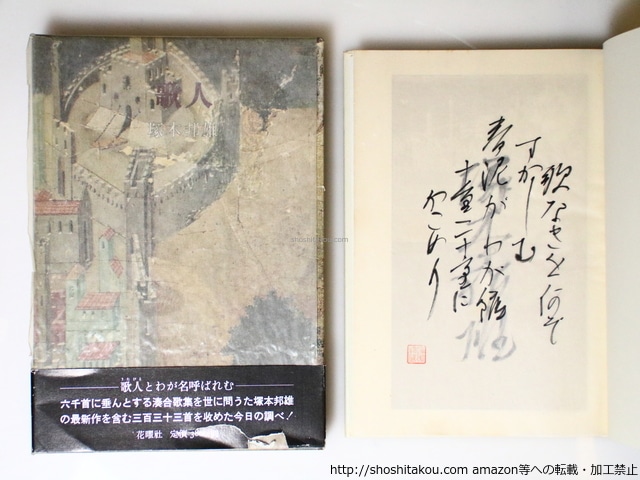 歌人
塚本邦雄
歌人とわが名呼ばれむ
六千首に垂んとする湊合歌集を世に問うた塚本邦雄
の最新作を含む三百三十三首を収めた今日の調べ!
花曜社 定價
歌なきを何ぞ
すかしむ
春泥がわが
shoshitakou.com
http://shoshitakou.com amazon等への転載・加工禁止